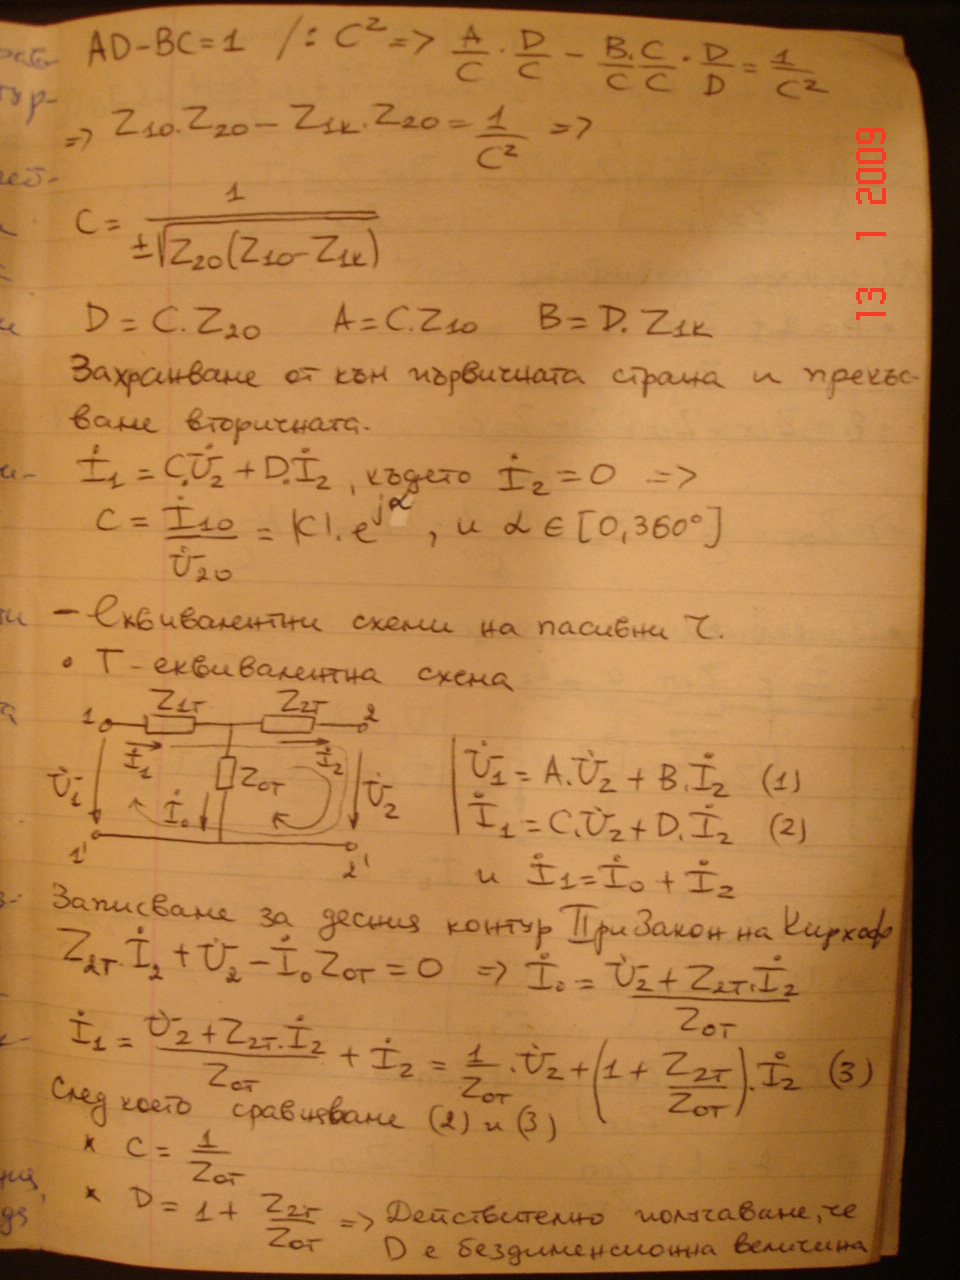 AD-BC=1 /: C² => A/C . D/C - B.C/C C . D/D = 1/C²
=> Z10.Z20 - Z1к.Z20 = 1/C² =>
C = 1/±√Z20(Z10-Z1к)
D = C.Z20 A=C.Z10 B=D.Z1к
Захранване от към първичната страна и прекъс-
ване вторичната.
İ1 = C.U̇2 + D.İ2, където İ2 = 0 =>
C = İ10/U̇20 = |C|.e^jα, и α ∈ [0,360°]
- Еквивалентни схеми на пасивни Ч.
• Т-еквивалентна схема
1 Z1т Z2т 2
İ1 İ2
U̇1 İ0 Z0т U̇2
1' 2'
U̇1 = A.U̇2 + B.İ2 (1)
İ1 = C.U̇2 + D.İ2 (2)
и İ1 = İ0 + İ2
Записване за десния контур II ри Закон на Кирхоф
Z2т.İ2 + U̇2 - İ0 Z0т = 0 => İ0 = U̇2 + Z2т.İ2/Z0т
İ1 = U̇2 + Z2т.İ2/Z0т + İ2 = 1/Z0т . U̇2 + (1 + Z2т/Z0т).İ2 (3)
След което сравняване (2) и (3)
* C = 1/Z0т
* D = 1 + Z2т/Z0т => Действително получаване, че
D е бездименсионна величина
13 1 2009